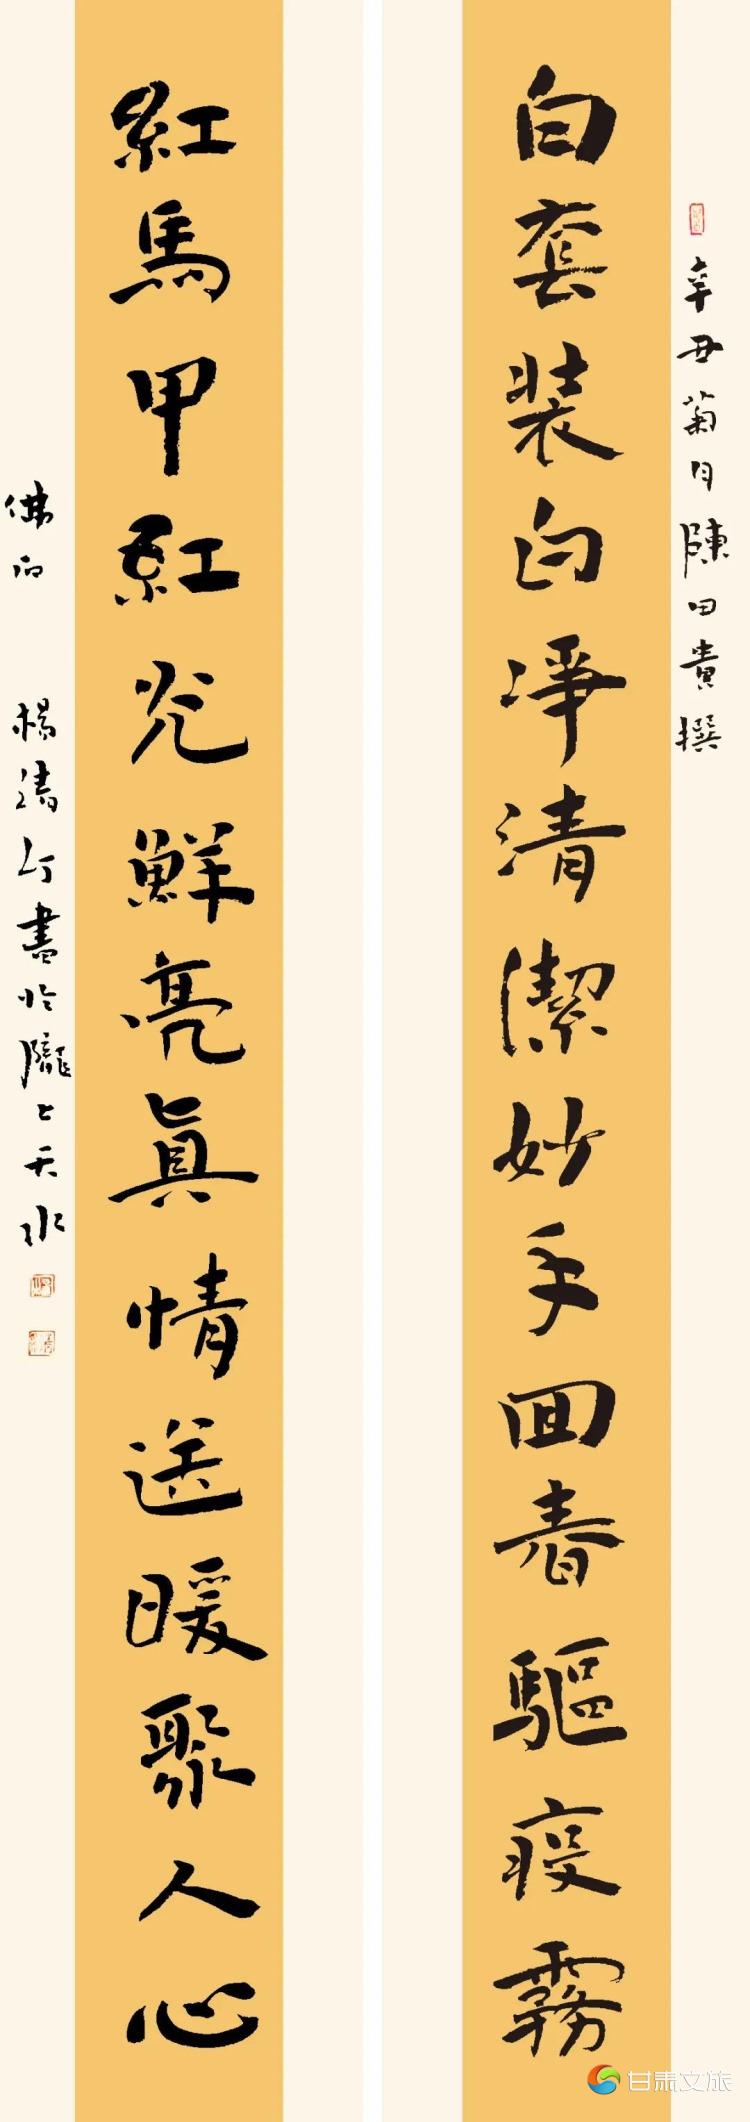 辛丑菊月陳田貴撰
白套装白凈清潔妙手回春驅疫霧
紅馬甲紅光鮮亮眞情送暖聚人心
佛 楊清汀書於隴上天水
甘肃文旅